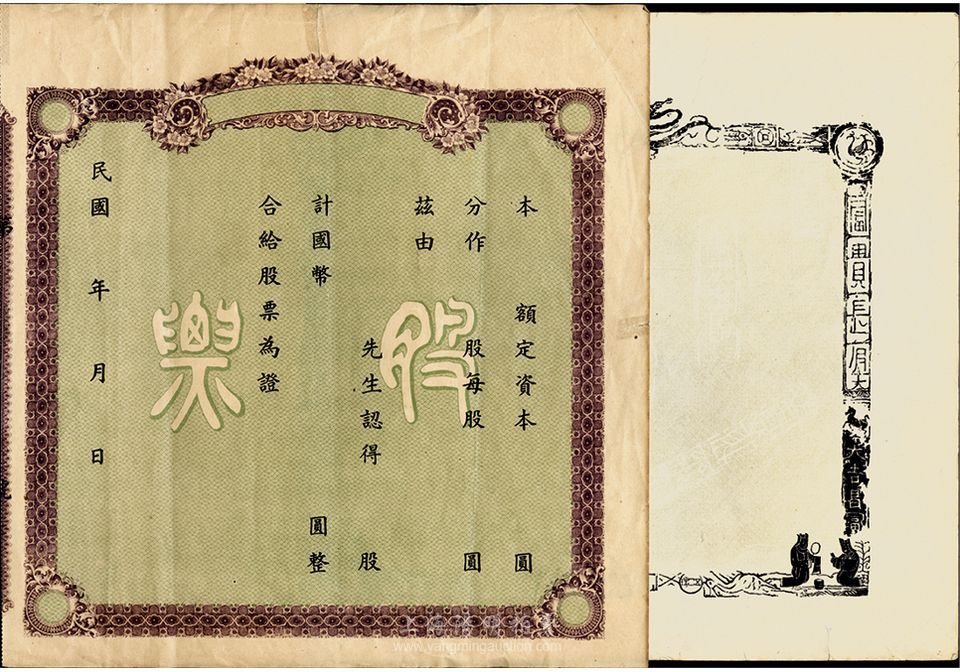 本　額定資本　圓
分作　股每股　圓
茲由
先生認得　股
計國幣　圓整
合給股票為證
民國　年　月　日
股票
富貴長
www.yangmingauction.com